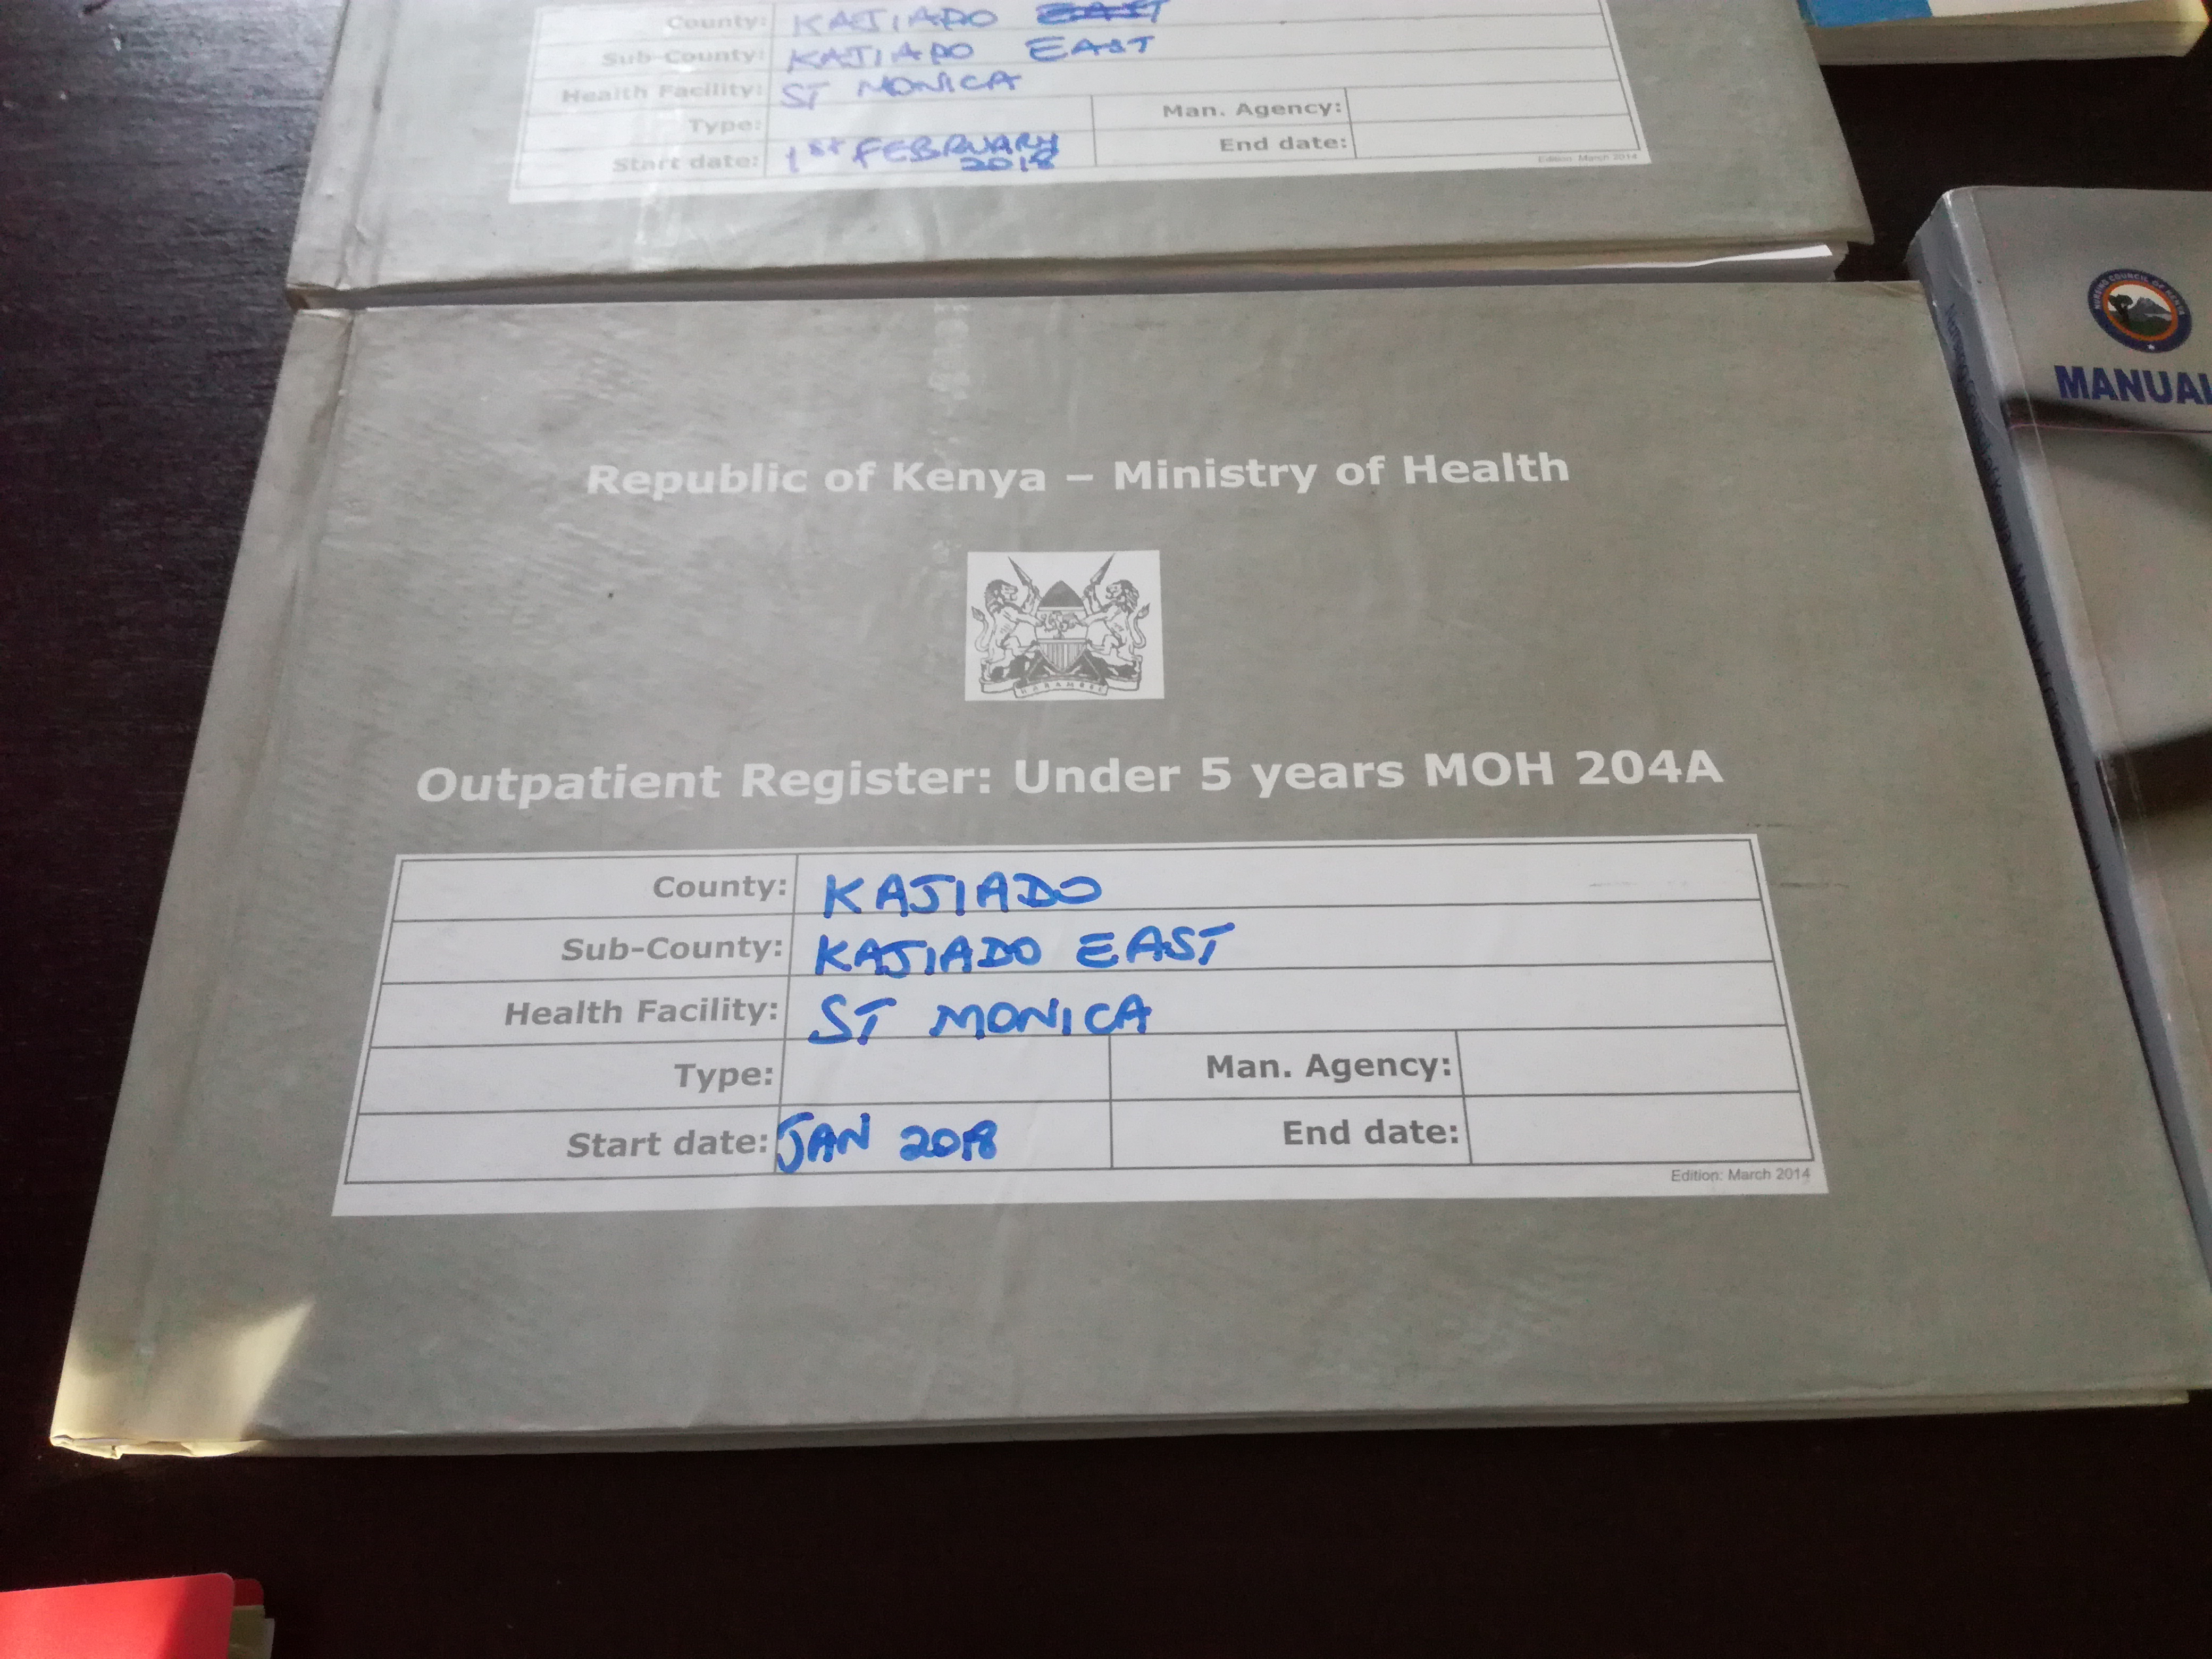 County: KAJIADO
Sub-County: KAJIADO EAST
Health Facility: ST MONICA
Type:
Man. Agency:
Start date: 1st FEBRUARY 2018
End date:
Edition: March 2014
NURSING COUNCIL OF KENYA
MANUAL
Republic of Kenya – Ministry of Health
HARAMBEE
Outpatient Register: Under 5 years MOH 204A
County: KAJIADO
Sub-County: KAJIADO EAST
Health Facility: ST MONICA
Type:
Man. Agency:
Start date: JAN 2018
End date:
Edition: March 2014
Nursing Council of Kenya